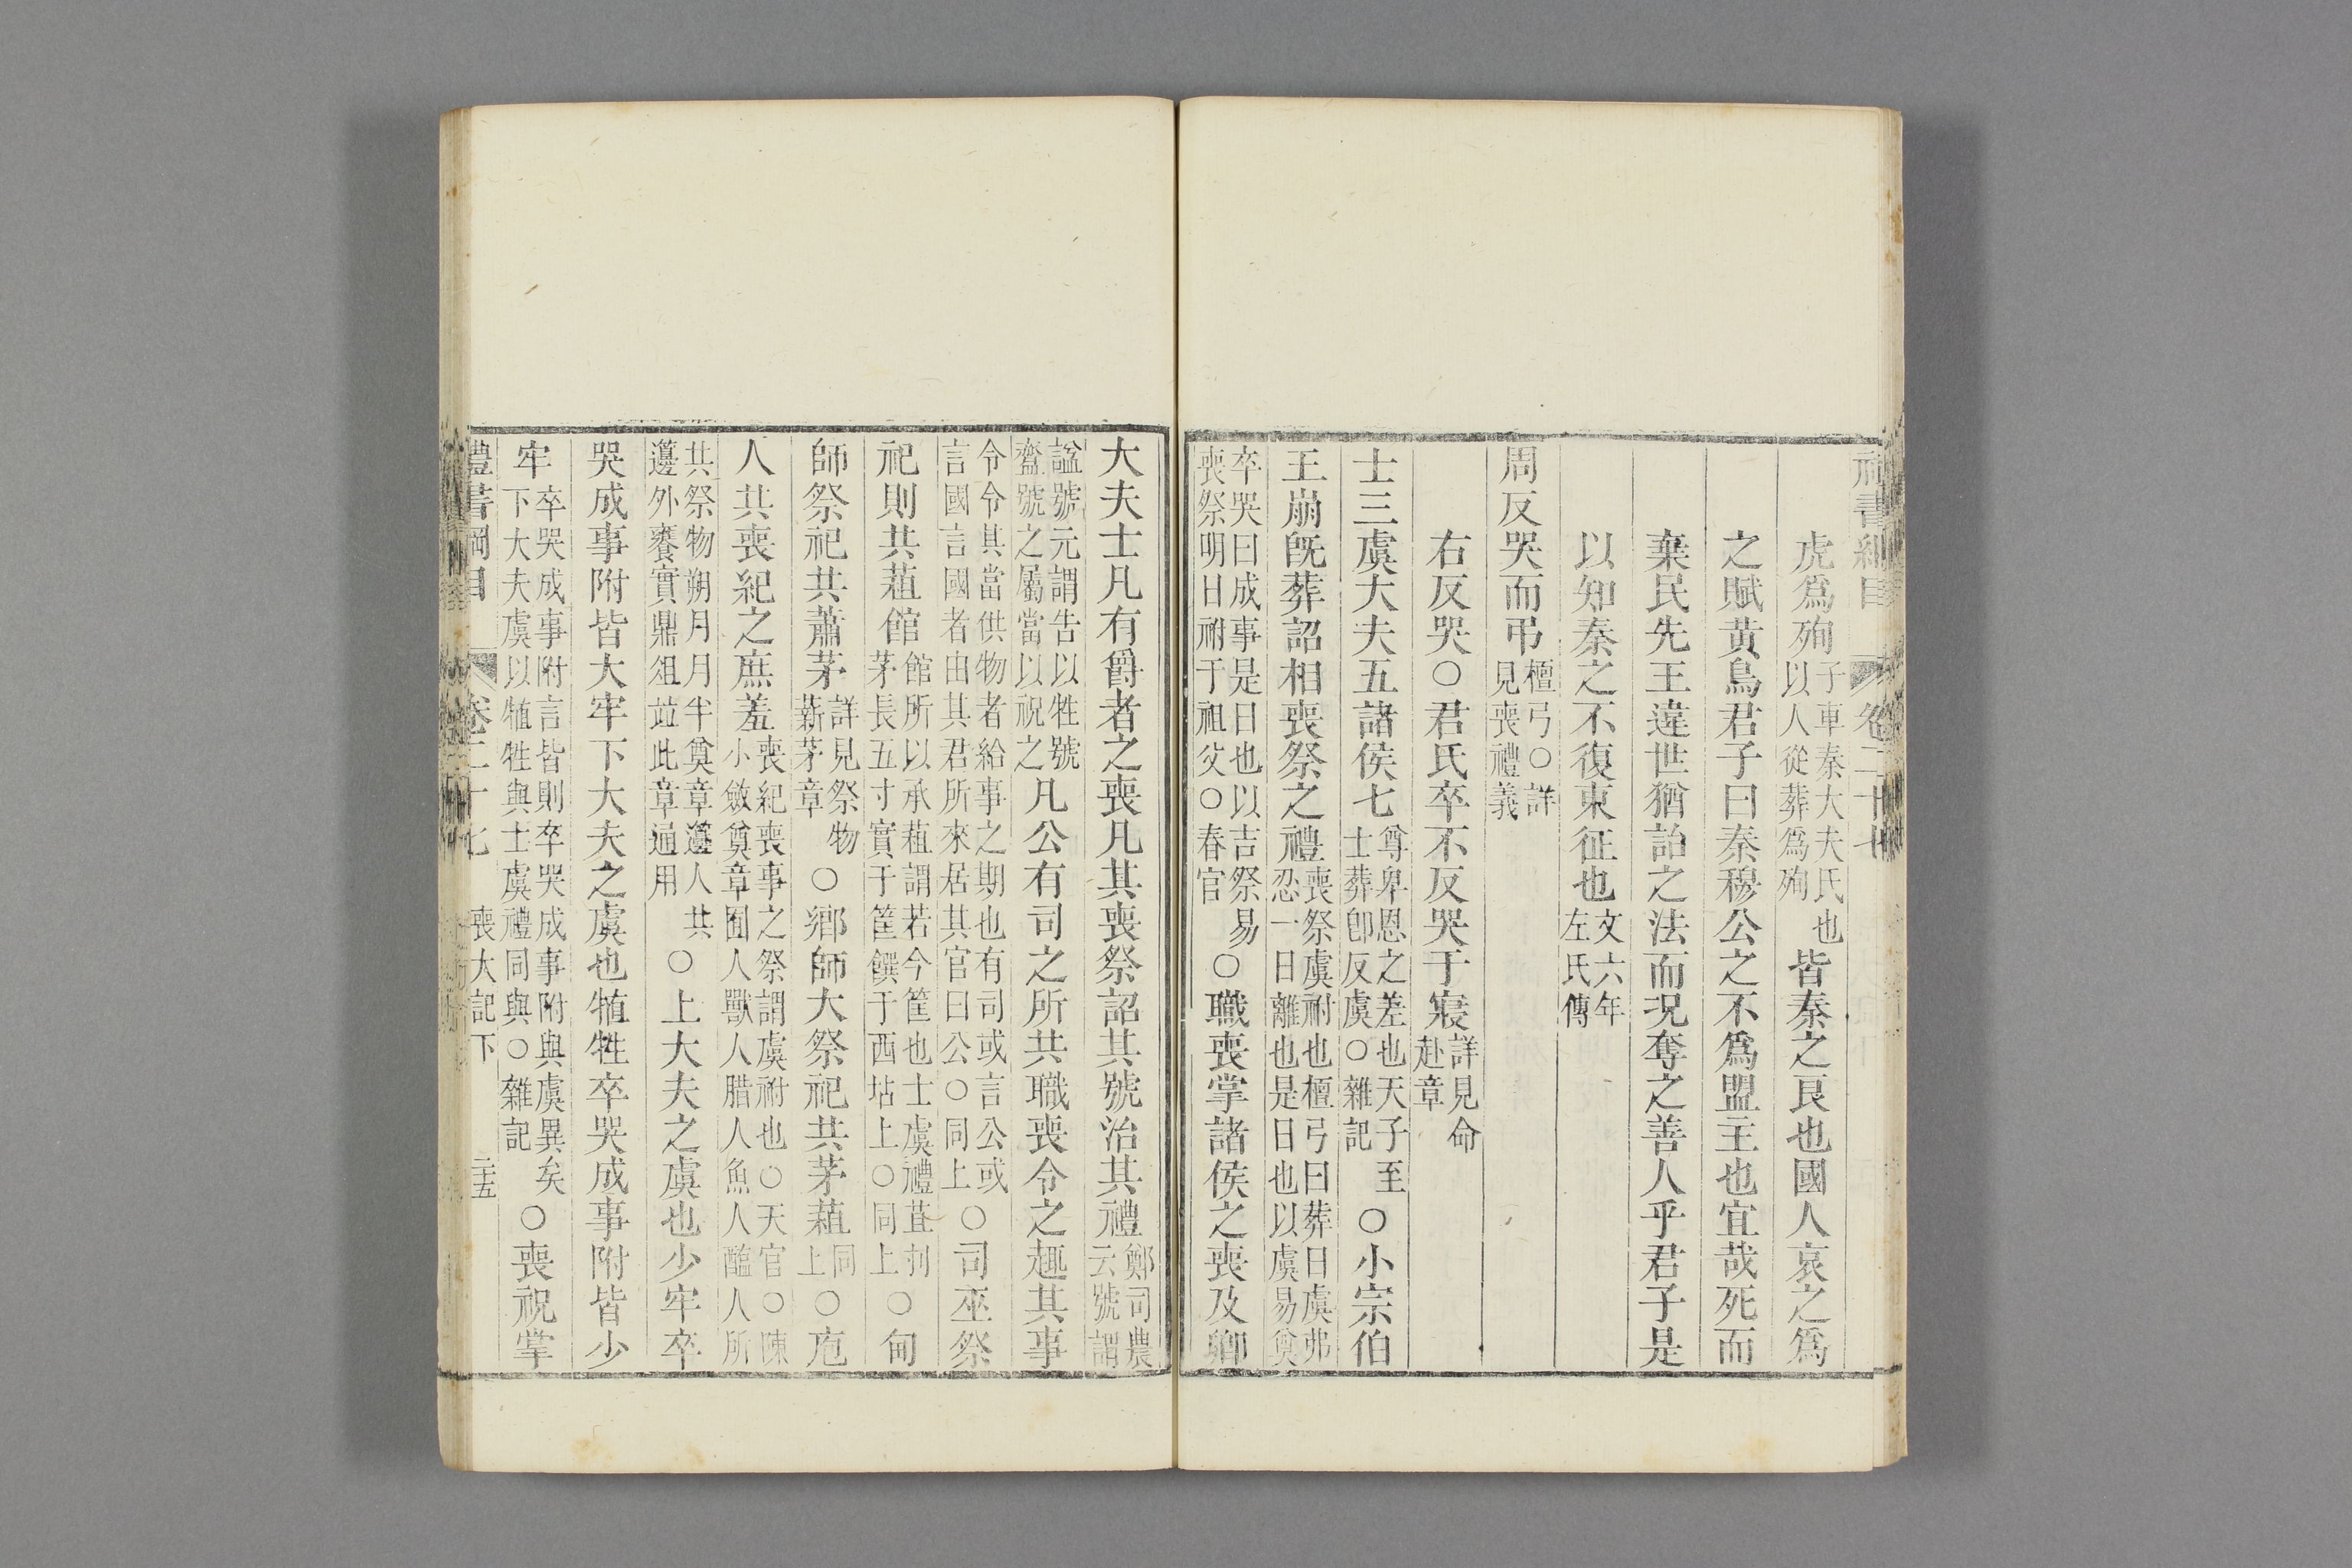 禮書綱目 卷二十七
虎爲殉子車秦大夫氏也以人從葬爲殉皆秦之良也國人哀之爲
之賦黃鳥君子曰秦穆公之不爲盟主也宜哉死而
棄民先王違世猶詒之法而況奪之善人乎君子是
以知秦之不復東征也文六年左氏傳
周反哭而弔檀弓○詳見喪禮義
右反哭○君氏卒不反哭于寢詳見命赴章
士三虞大夫五諸侯七尊卑恩之差也天子至士葬卽反虞○雜記○小宗伯
王崩旣葬詔相喪祭之禮喪祭虞祔也檀弓曰葬日虞弗忍一日離也是日也以虞易奠
卒哭曰成事是日也以吉祭易喪祭明日祔于祖父○春官○職喪掌諸侯之喪及卿
大夫士凡有爵者之喪凡其喪祭詔其號治其禮鄭司農云號謂
諡號元謂告以牲號齍號之屬當以祝之凡公有司之所共職喪令之趣其事
令令其當供物者給事之期也有司或言公或言國言國者由其君所來居其官曰公○同上○司巫祭
祀則共蒩館館所以承蒩謂若今筐也士虞禮苴刌茅長五寸實于筐饌于西坫上○同上○甸
師祭祀共蕭茅詳見祭物薪茅章○鄉師大祭祀共茅蒩同上○庖
人共喪紀之庶羞喪紀喪事之祭謂虞祔也○天官○陳小斂奠章囿人獸人腊人魚人醢人所
共祭物朔月月半奠章籩人共籩外饔實鼎俎竝此章通用○上大夫之虞也少牢卒
哭成事附皆大牢下大夫之虞也犆牲卒哭成事附皆少
牢卒哭成事附言皆則卒哭成事附與虞異矣下大夫虞以犆牲與士虞禮同與○雜記○喪祝掌
禮書綱目 卷二十七 喪大記下 三五